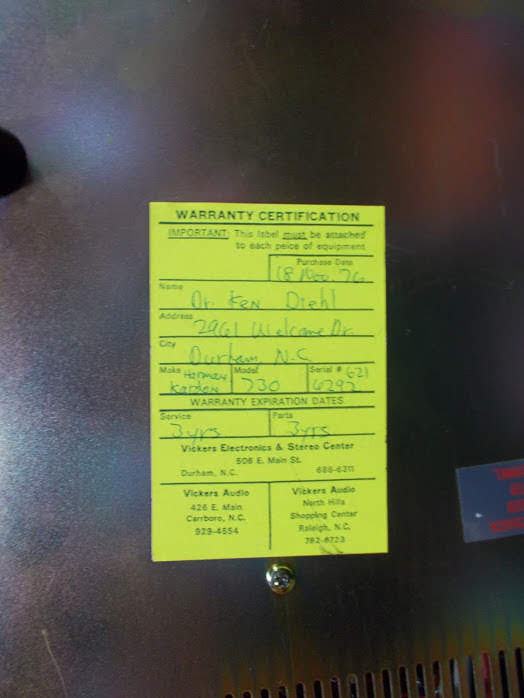 WARRANTY CERTIFICATION
IMPORTANT: This label must be attached
to each peice of equipment
Purchase Date
18 Nov. 76
Name
Dr. Ken Diehl
Address
2961 Welcome Dr.
City
Durham, N.C.
Make Harman Kardon
Model 730
Serial # 621 6292
WARRANTY EXPIRATION DATES
Service
3 yrs
Parts
3 yrs
Vickers Electronics & Stereo Center
506 E. Main St.
Durham, N.C. 688-6311
Vickers Audio
426 E. Main
Carrboro, N.C.
929-4554
Vickers Audio
North Hills
Shopping Center
Raleigh, N.C.
782-6723